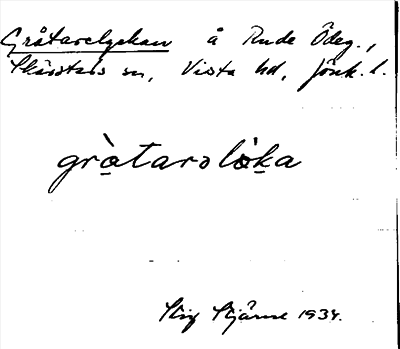 Gråtarelyckan å Rude Ödeg.,
Skärstads sn, Vista hd, Jönk. l.
gràtarolòka
Stig Stjärne 1934.